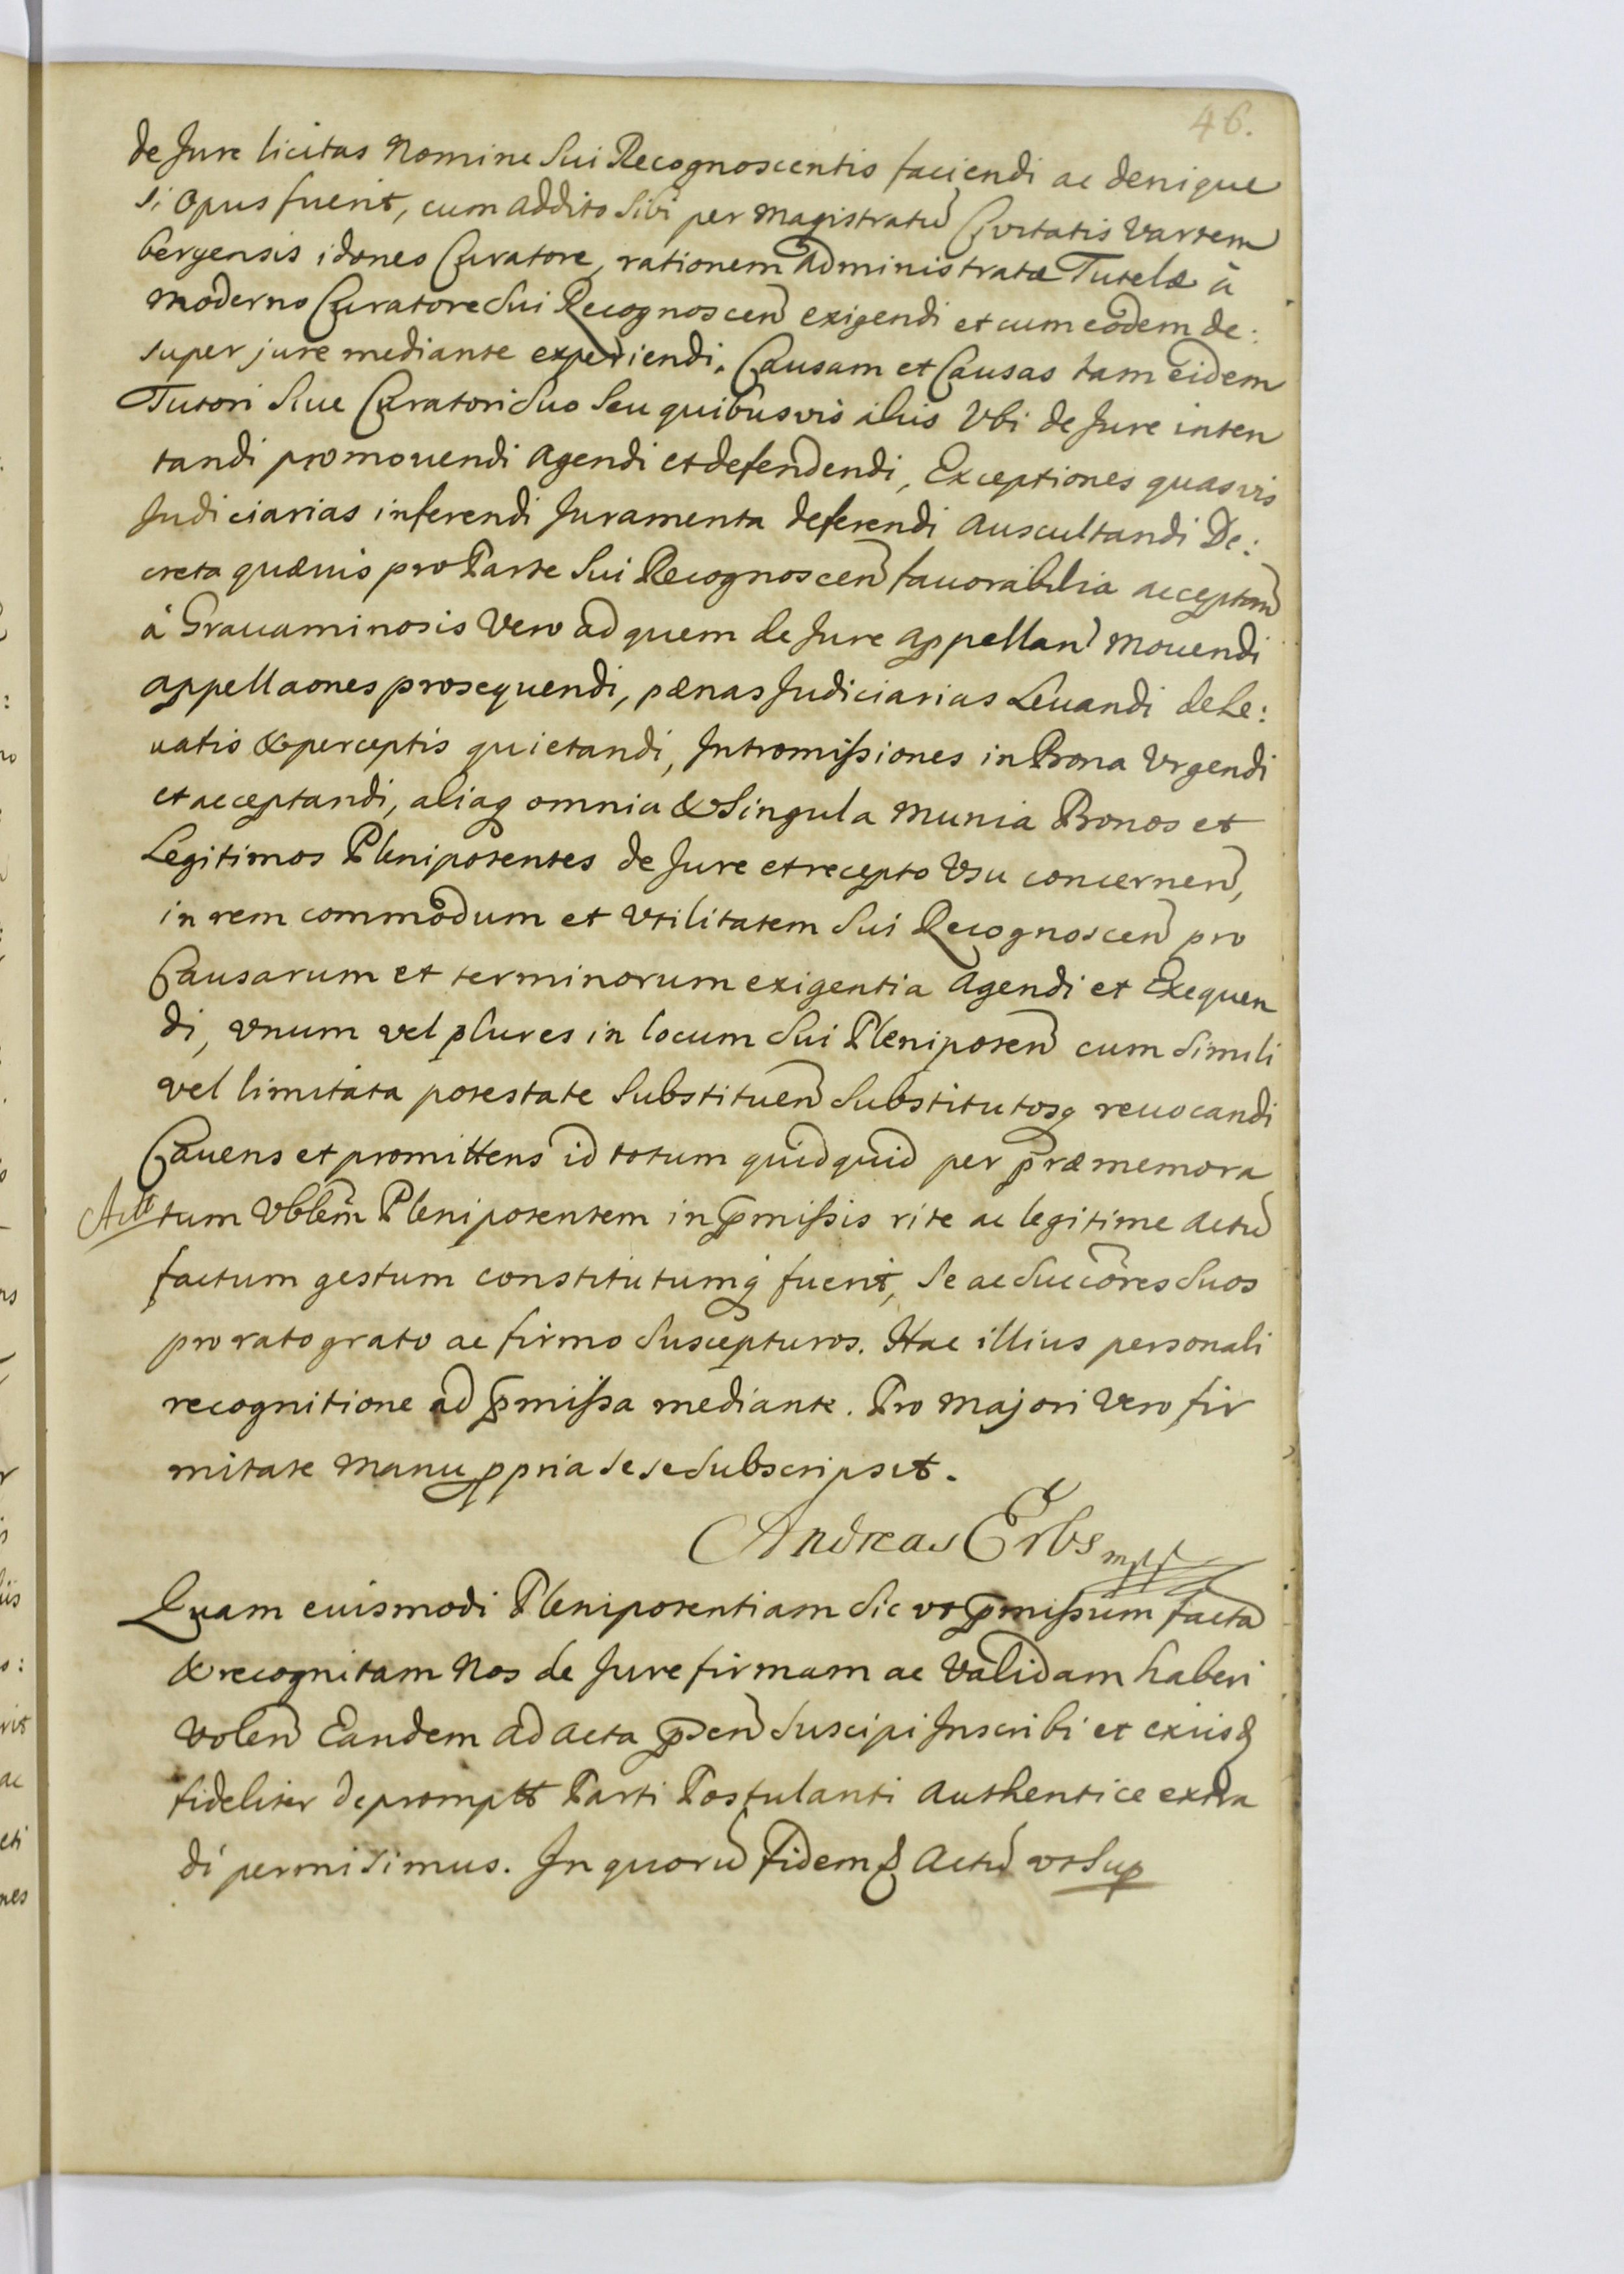 46.
de Jure licitas Nomine Sui Recognoscentis faciendi ac denique
si opus fuerit, cum addito sibi per Magistratū Civitatis Vartem
bergensis idoneo Curatore, rationem administratæ Tutelæ à
moderno Curatore Sui Recognoscen̄ exigendi et cum eodem de:
super jure mediante experiendi. Causam et Causas tam eidem
Tutori Siue Curatori Suo Seu quibusvis aliis Vbi de Jure inten
tandi promouendi agendi et defendendi, Exceptiones quasvis
Judiciarias inferendi Juramenta deferendi auscultandi De:
creta quævis pro Parte Sui Recognoscen̄ fauorabilia acceptan̄
à Grauaminosis Vero ad quem de Jure appellan̄ Mouendi
appellaones prosequendi, pænas Judiciarias Leuandi de Le:
uatis & perceptis quietandi, Intromissiones in Bona Vrgendi
et acceptandi, aliaq omnia & Singula Munia Bonos et
Legitimos Plenipotentes de Jure et recepto Vsu concernen̄,
in rem commodum et Vtilitatem Sui Recognoscen̄ pro
Causarum et terminorum exigentia agendi et Exequen
di, vnum vel plures in locum Sui Plenipoten̄ cum simili
vel limitata potestate Substituen̄ Substitutosq reuocandi
Cauens et promittens id totum quidquid per præmemora
Actū tum Vblem̄ Plenipotentem in p̄missis rite ac legitime actū
factum gestum constitutumq fuerit, Se ac Succōres Suos
pro rato grato ac firmo Suscepturos. Hac illius personali
recognitione ad p̄missa mediante. Pro Majori Vero fir
mitate Manu ppria Se se Subscripsit.
Andreas Erbs mpp
Quam euismodi Plenipotentiam Sic vt p̄missum factā
& recognitam Nos de Jure firmam ac Validam haberi
Volen̄ Eandem ad acta p̄sen̄ Suscipi Inscribi et exiisd
fideliter deprompt̄ Parti Postulanti Authentice extra
di permisimus. In quorū Fidem & Actū vt Sup